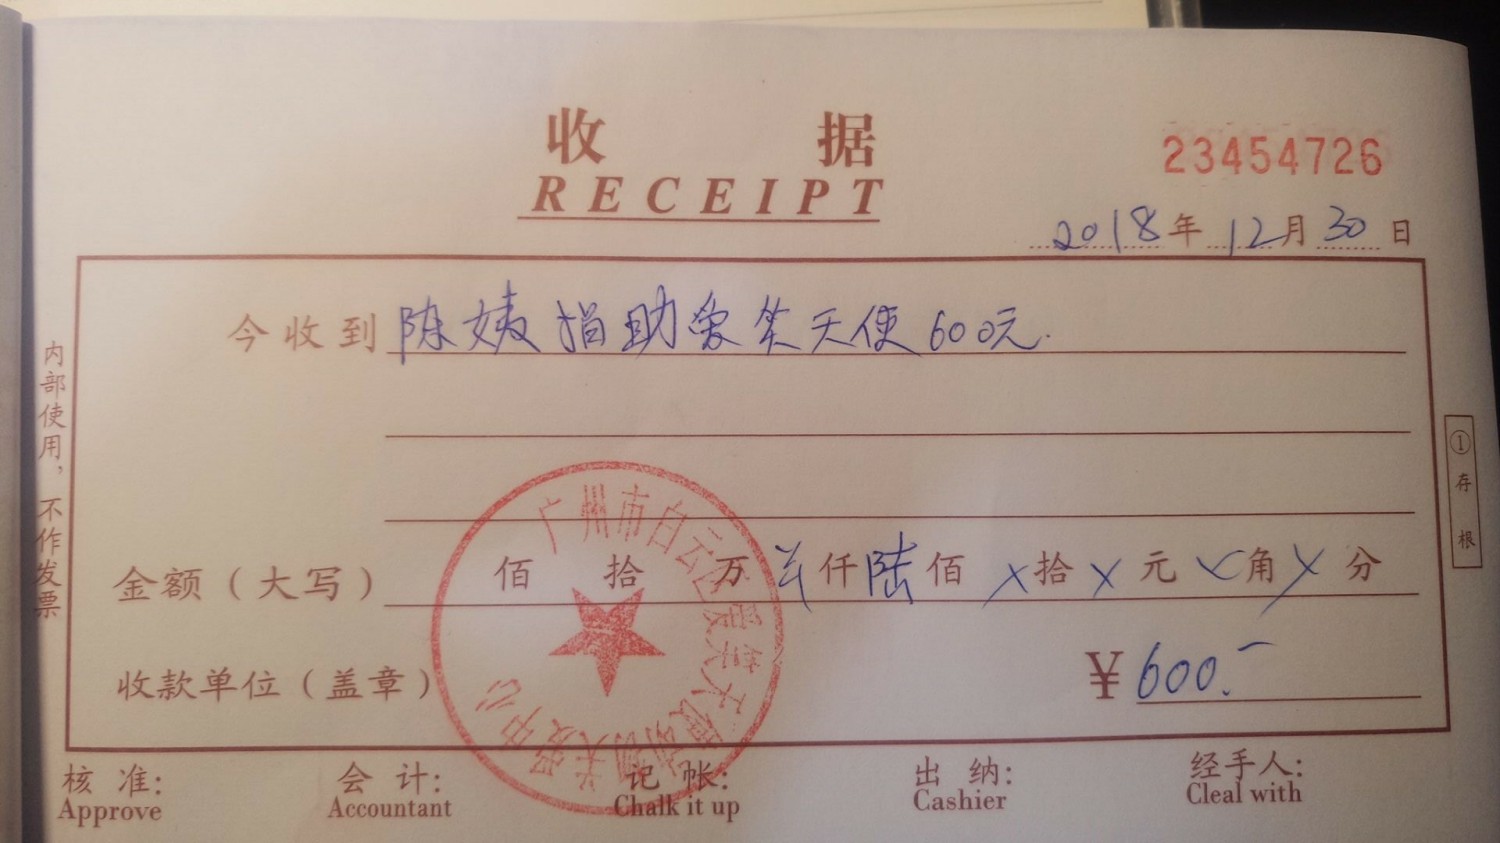 收据
RECEIPT
23454726
2018年12月30日
今收到陈姨捐助爱笑天使600元.
内部使用，不作发票
①存根
金额（大写） 佰 拾 万 仟陆佰 X拾 X 元 X角 X 分
收款单位（盖章）
¥600.-
广州市白云区爱笑天使 关爱中心
核准: 会计: 记帐: 出纳: 经手人:
Approve Accountant Chalk it up Cashier Cleal with